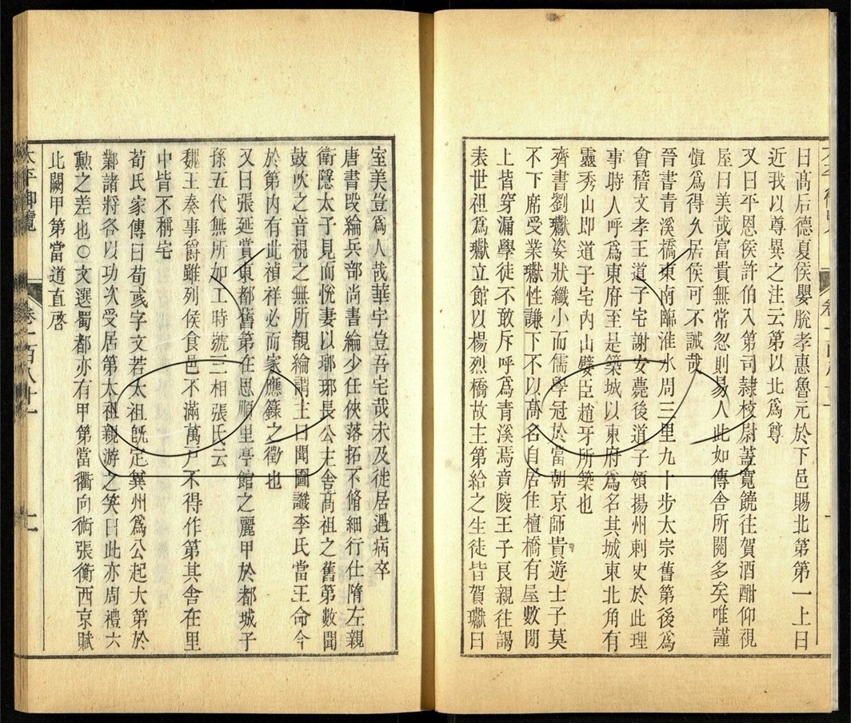 日高后德夏侯嬰脫孝惠魯元於下邑賜北第第一上曰
近我以尊異之注云第以北爲尊
又曰平恩侯許伯入第司隷校尉蓋寬饒往賀酒酣仰視
屋曰美哉富貴無常忽則易人此如傳舍所閱多矣唯謹
愼爲得久居侯可不誡哉
晉書青溪橋東南臨淮水周三里九十步太宗舊第後爲
會稽文孝王道子宅謝安薨後道子領揚州刺史於此理
事時人呼爲東府至是築城以東府爲名其城東北角有
靈秀山即道子宅內山嬖臣趙牙所築也
齊書劉瓛姿狀纖小而儒學冠於當朝京師貴遊士子莫
不下席受業瓛性謙下不以高名自居住檀橋有屋數間
上皆穿漏學徒不敢斥呼爲青溪焉竟陵王子良親往謁
表世祖爲瓛立館以楊烈橋故主第給之生徒皆賀瓛曰
室美豈爲人哉華宇豈吾宅哉未及徙居遇病卒
唐書叚綸兵部尚書綸少任俠落拓不脩細行仕隋左親
衛隱太子見而悅妻以瑯琊長公主舍高祖之舊第數聞
鼓吹之音視之無所覩綸謂主曰聞圖讖李氏當王命今
於第內有此禎祥必而家應籙之徵也
又曰張延賞東都舊第在思順里亭館之麗甲於都城子
孫五代無所加工時號三相張氏云
魏王奏事爵雖列侯食邑不滿萬戸不得作第其舍在里
中皆不稱宅
荀氏家傳曰荀彧字文若太祖旣定冀州爲公起大第於
鄴諸將各以功次受居第太祖親游之笑曰此亦周禮六
勲之差也○文選蜀都亦有甲第當衢向術張衡西京賦
北闕甲第當道直啓
太平御覽
卷一百八十一
十一